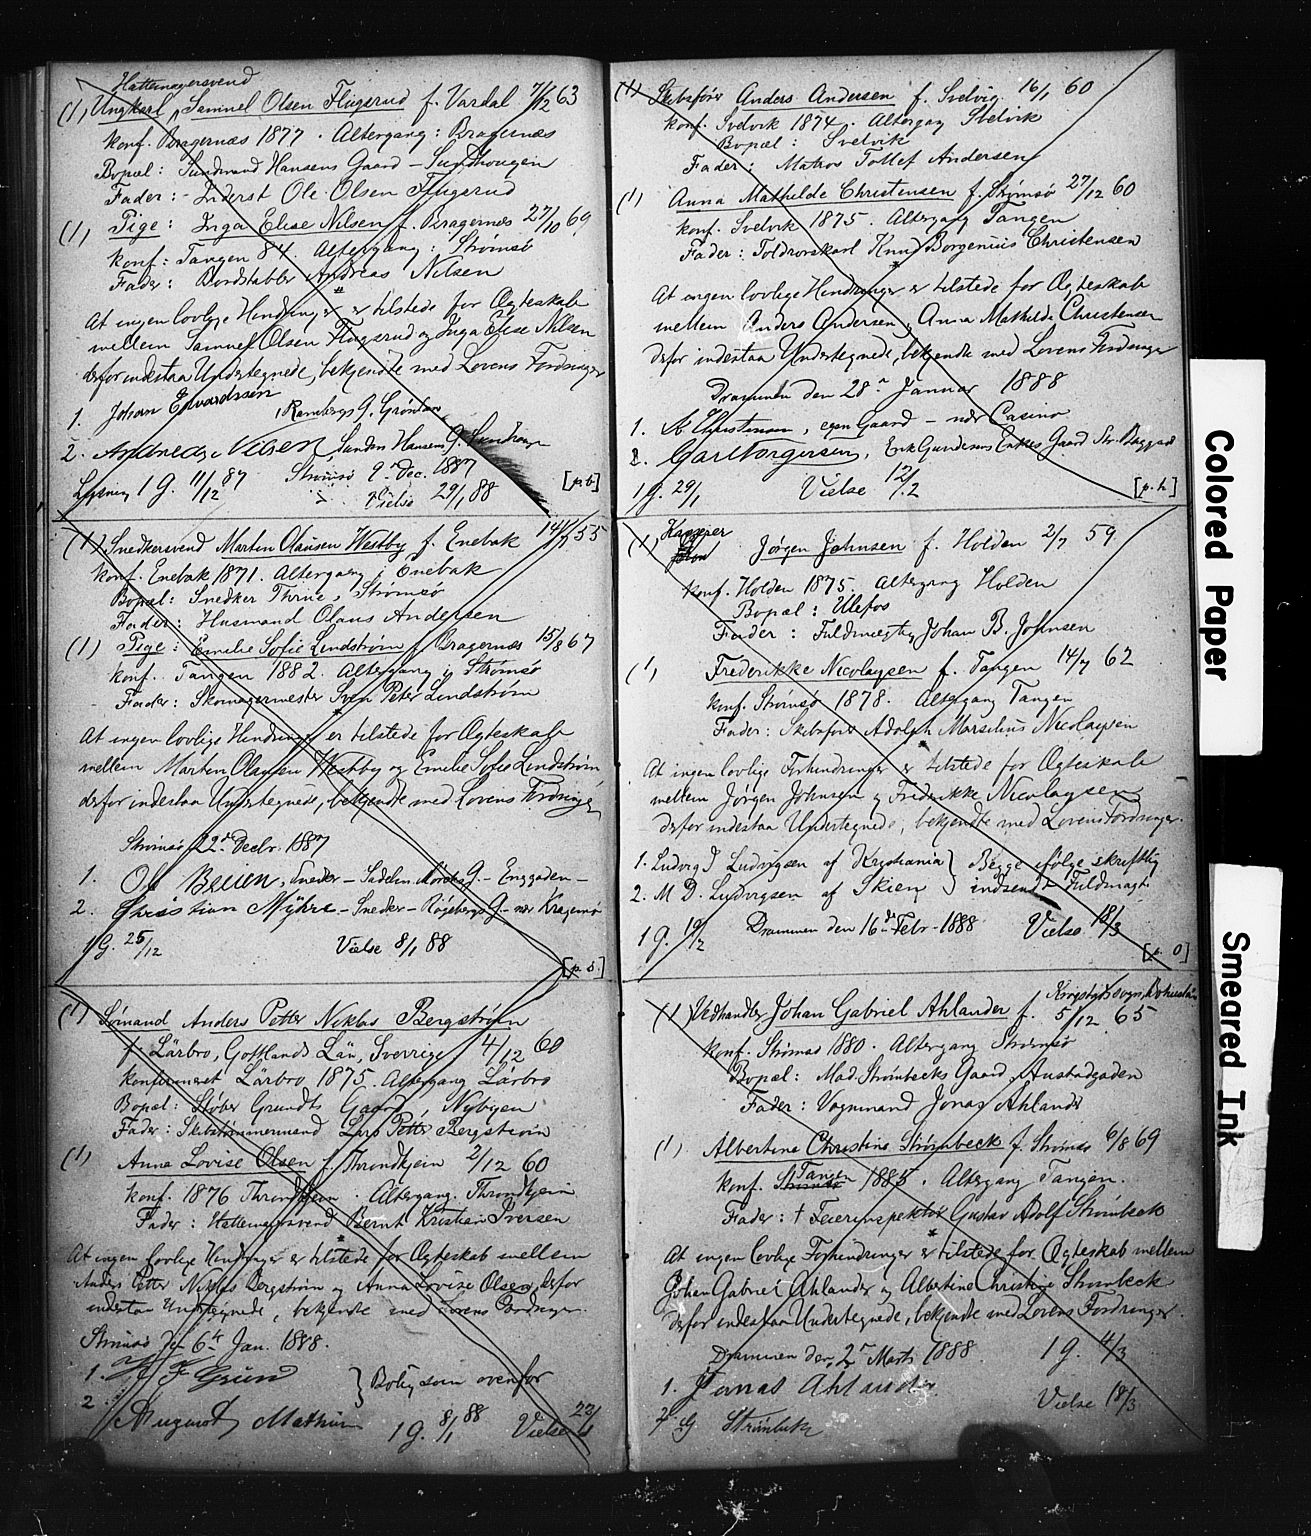 Hattemagersvend
(1) Ungkarl, Samuel Olsen Flugerud f. Vardal 7/12 63
konf. Bragernæs 1877. Altergang: Bragernæs
Bopæl: Sundmand Hansens Gaard - Sundhougen
Fader: - Inderst Ole Olsen Flugerud
(1) Pige: Inga Elise Nilsen f. Bragernæs 27/10 69
konf: Tangen 84. Altergang: Strømsø
Fader: Bordstabler Andreas Nilsen
At ingen lovlige Hindringer er tilstede for Ægteskab
mellem Samuel Olsen Flugerud og Inga Elise Nilsen
derfor indestaa Undertegnede, bekjendte med Lovens Fordringer
1. Johan Edvardssen, Rambergs G. Grønland
2. Andreas Nilsen, Hansens G.
Lysning 1 G. 11/12 87 Strømsø 9. Dec. 1887 [p.b]
Vielse 29/1 88
(1) Snedkersvend Martin Olausen Westby f. Enebak 14/7 55
konf. Enebak 1871. Altergang i Enebak
Bopæl: Snedker Thrine, Strømsø
Fader: Husmand Olaus Andersen
(1) Pige: Emilie Sofie Lindstrøm f. Bragernæs 15/8 67
konf. Tangen 1882. Altergang i Strømsø
Fader: Skomagermester Sven Peter Lindstrøm
At ingen lovlige Hindringer er tilstede for Ægteskab
mellem Martin Olausen Westby og Emilie Sofie Lindstrøm
derfor indestaa Undertegnede, bekjendte med Lovens Fordringer
Strømsø 22. Decbr. 1887
1. Ole Breien, Sneder - G. - Enggaden -
2. Christian Myhre - Sneder - Røgebergs G. - nær Kragemo
1 G. 25/12 Vielse 8/1 88
[p.s.]
(1) Sømand Anders Petter Niklas Bergstrøm
f. Lärbro, Gottlands Län, Sverrige 4/12 60
konfirmeret Lärbro 1875. Altergang Lärbro
Bopæl: Støber Grundts Gaard, Nybyen
Fader: Skibstømmermand Lars Petter Bergstrøm
(1) Anna Lovise Olsen f. Throndhjem 2/12 60
konf. 1876 Throndhjem. Altergang. Throndhjem
Fader: Hattemagersvend Bernt Kristian Iversen
At ingen lovlige Hindringer er tilstede for Ægteskab mellem
Anders Petter Niklas Bergstrøm og Anna Lovise Olsen, derfor
indestaa Undertegnede, bekjendte med Lovens Fordringer.
Strømsø den 6te Jan. 1888.
1. H F Grün
2. August Mathisen } Bolig som ovenfor
1 G. 8/1 88 Vielse 22/1
(1) Skibsfører Anders Andersen f. Svelvig 16/1 60
konf. Svelvik 1874. Altergang Svelvik
Bopæl: Svelvik
Fader: Matros Tollef Andersen
(1) Anna Mathilde Christensen f. Strømsø 27/12 60
konf. Svelvik 1875. Altergang Tangen
Fader: Toldrorskarl Knut Borgenius Christensen
At ingen lovlige Hindringer er tilstede for Ægteskab
mellem Anders Andersen og Anna Mathilde Christensen
derfor indestaa Undertegnede, bekjendte med Lovens Fordringer
Drammen den 28. Januar 1888
1. K Christensen, egen Gaard - nær Casino
2. Carl Torgersen, Enke Gundersens Enkes Gaard Str. Baggad
1 G. 29/1 Vielse 12/2 [p.h.]
(1) Kasserer Jørgen Johnsen f. Holden 2/7 59
konf. Holden 1875. Altergang Holden
Bopæl: Ulefos
Fader: Fuldmægtig Johan B. Johnsen
(1) Frederikke Nicolaysen f. Tangen 14/7 62
konf. Strømsø 1878. Altergang Tangen
Fader: Skibsfører Adolph Marselius Nicolaysen
At ingen lovlige Forhindringer er tilstede for Ægteskab
mellem Jørgen Johnsen og Fredrikke Nicolaysen
derfor indestaa Undertegnede, bekjendte med Lovens Fordringer.
1. Ludvig J Ludvigsen af Kristiania } Begge ifølge skriftlig
2. M D. Ludvigsen af Skien } indsendt Fuldmagt
1 G. 19/2 Drammen den 16de Febr. 1888 Vielse 18/3
[p. O]
(1) Vedhandler Johan Gabriel Ahlander f. 5/12 65
konf. Strømsø 1880. Altergang Strømsø
Bopæl: Mad. Strømbecks Gaard, Austadgaden
Fader: Vognmand Jonas Ahlander
(1) Albertine Christine Strømbeck f. Strømsø 6/8 69
konf. Strømsø Tangen 1885. Altergang Tangen.
Fader: † Feierinspektør Gustav Adolf Strømbeck
At ingen lovlige Forhindringer er tilstede for Ægteskab mellem
Johan Gabriel Ahlander og Albertine Christine Strømbeck
derfor indestaa Undertegnede, bekjendte med Lovens Fordringer.
Drammen den 2. Marts 1888 1 G. 4/3
1. Jonas Ahlander
2. G Strömbeck
Vielse 18/3
Colored Paper
Smeared Ink